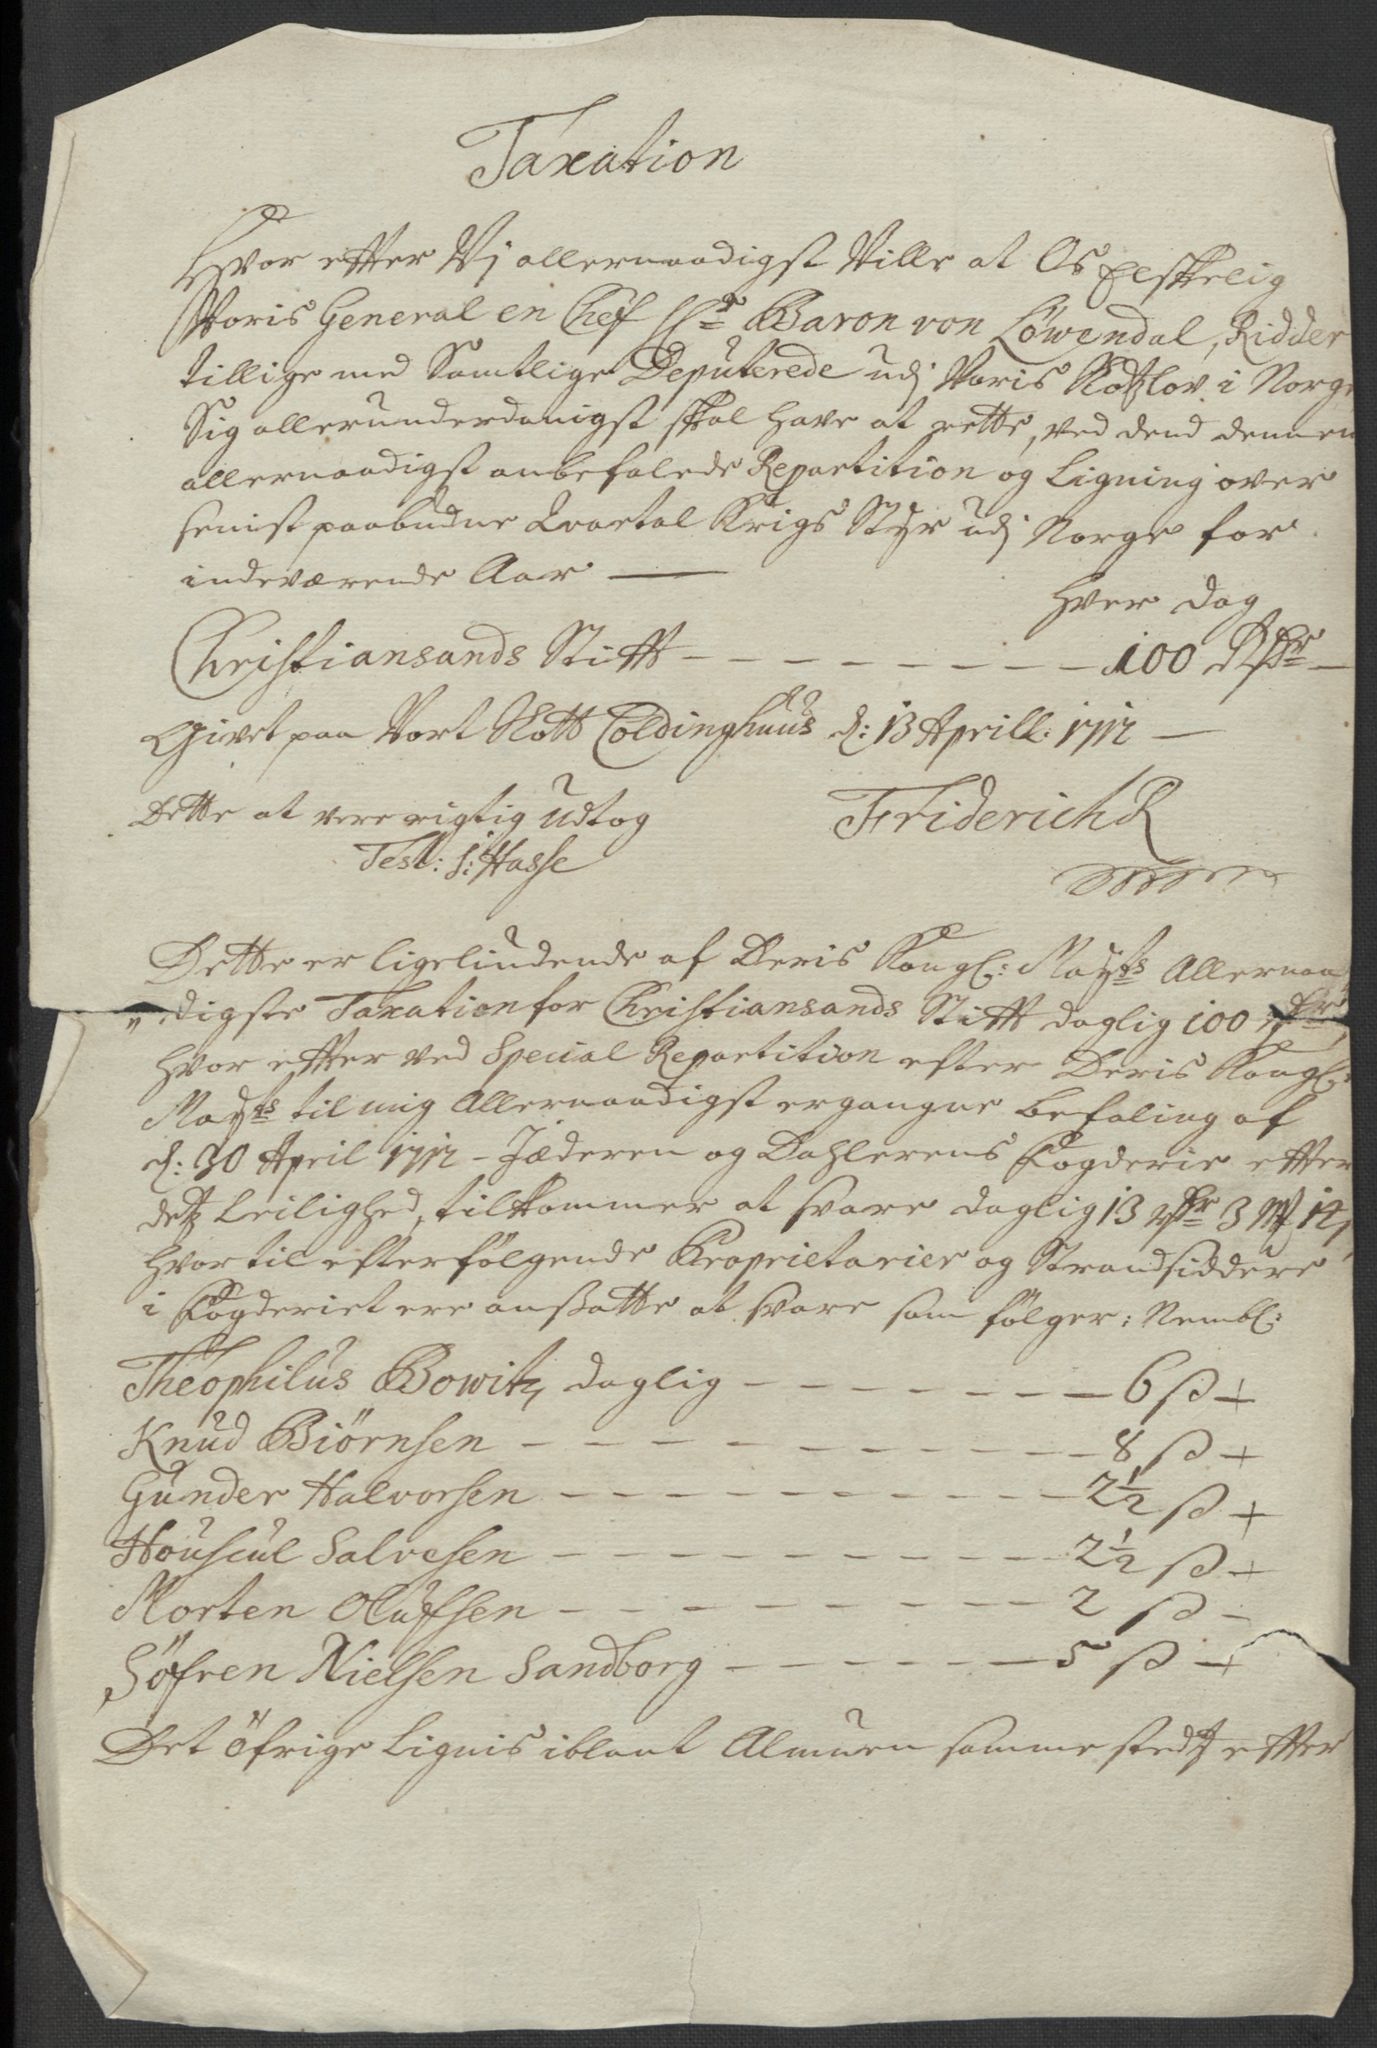 Taxation
Hvor effter Vj allernaadigst Ville at Os Elskelig
Voris General en Chef Hr Baron von Löwendal, Ridder
tillige med Samtlige Deputerede udj Voris Slotzlov i Norge
Sig allerunderdanigst skal have at rette, ved dend dennem
allernaadigst anbefalede Repartition og Ligning over
senist paabudne Qvartal Krigs Styr udj Norge for
indeværende Aar
hver dag
Christiansands Stifft - - - - - - - - - 100 Rdr
Givet paa Vort Slott Coldinghuus d: 13 Aprill: 1712
Dette at være rigtig udtog
Friderich R
Test: J: Hasse
Dette er ligelindende af Deris Kongl: Mayts Allernaa
„digste Taxation for Christiansands Stifft daglig 100 rdr
hvor effter ved Special Repartition efter Deris Kongl:
Mayts til mig Allernaadigst ergangne befaling af
d: 30 April 1712 - Jæderen og Dahlerens Fogderie effter
detz Leilighed, tilkommer at svare daglig 13 rdr 3 mk 12,
hvortil efterfølgende Proprietarier og Strandsiddere
i Fogderiet ere ansatte at svare som følger: Nembl:
Theophilus Bowitz, daglig - - - - - - - 6 ß +
Knud Biörnsen - - - - - - - - - 8 ß +
Gunder Halvorsen - - - - - - - - - 2½ ß +
Houscul Salvesen - - - - - - - - - 2½ ß +
Morten Oluffsen - - - - - - - - - 2 ß -
Söfren Nielsen Sandborg - - - - - - - 5 ß +
Det öfrige Lignis iblant Almuen samme stedtz effter